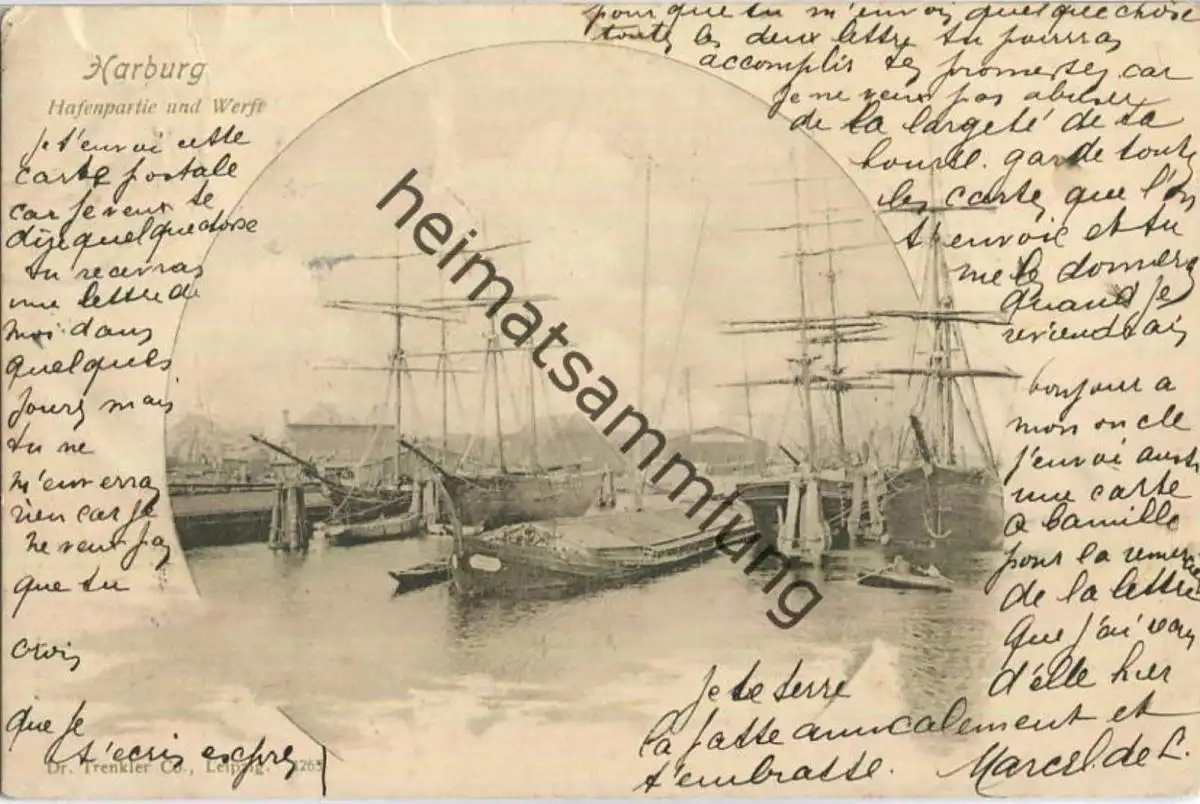 Harburg
Hafenpartie und Werft
je t'envoi cette
carte postale
car je veux te
dire quelque chose
tu recevras
une lettre de
moi dans
quelques
jours mais
tu ne
m'enverras
rien car je
ne veux pas
que tu
crois
que je
t'écris exprès
pour que tu m'envois quelque chose
toutes les deux lettre tu pourras
accomplir tes promesses car
je ne veux pas abuser
de la largeté de ta
bourse. garde toutes
les cartes que l'on
t'envoie et tu
me les donneras
quand je
reviendrais
bonjour a
mon oncle
j'envoi aussi
une carte
a Camille
pour la remercier
de la lettre
que j'ai reçu
d'elle hier
Je te serre
la patte amicalement et
t'embrasse. Marcel. de L.
Dr. Trenkler Co., Leipzig. 4265
heimatsammlung